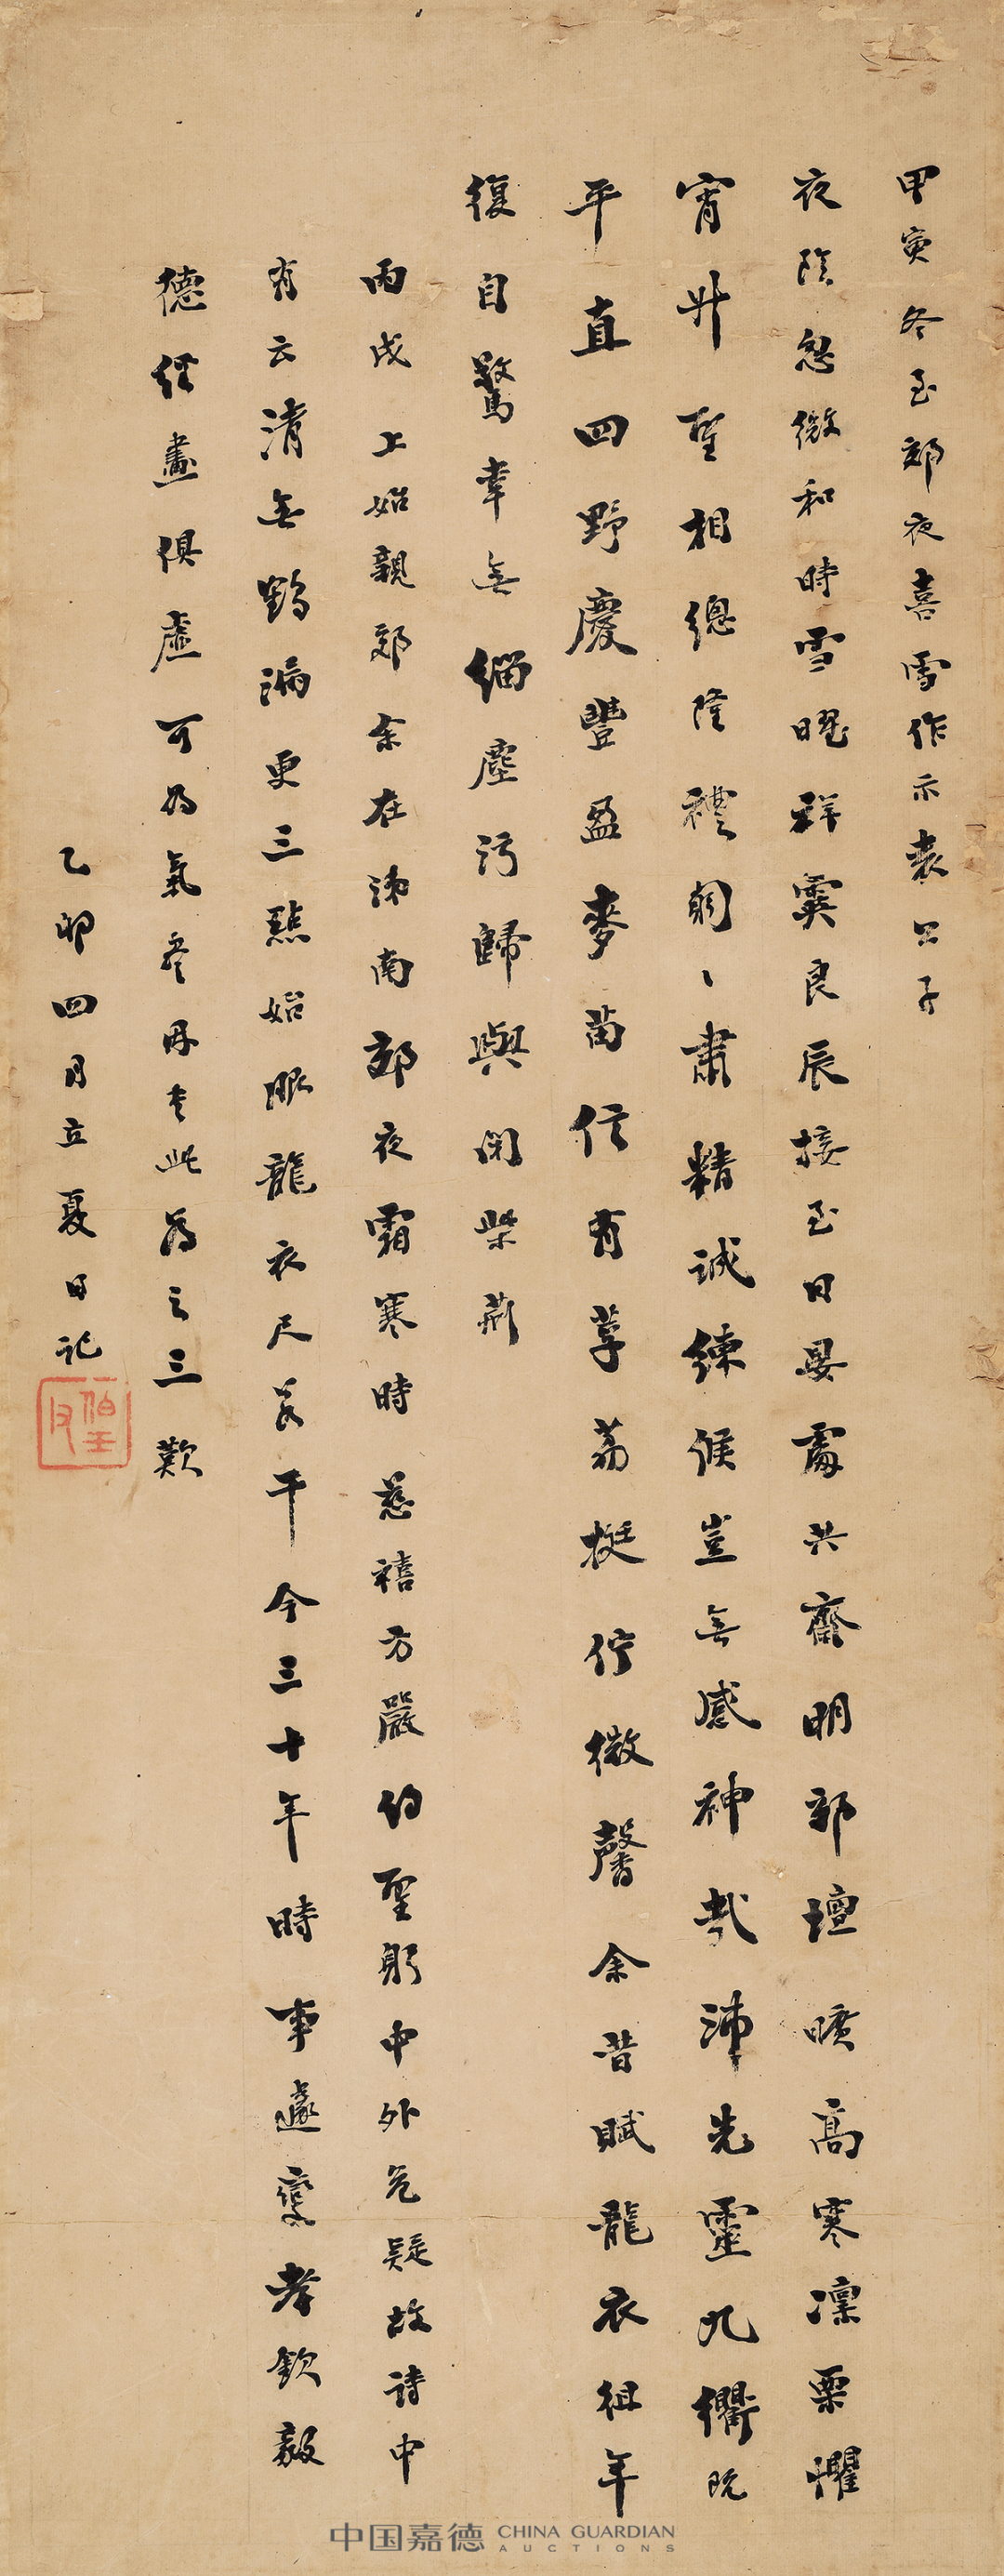 甲寅冬至郊夜喜雪作示袁公子
夜陰忽微和時雪曜祥霙良辰接至日晏處共齋明郊壇曠高寒凜栗懼
宵升聖相總隆禮闓〻肅精誠練候豈無感神哉沛先靈九衢既
平直四野慶豐盈麥苗信有孚荔挺佇微馨余昔賦龍衣徂年
復自驚幸無緇塵污歸與閉柴荊
丙戌上始親郊余在沛南郊夜霜寒時慈禧方嚴約聖躬中外危疑故詩中
有云清無鶴漏更三點始服龍衣尺若干今三十年時事遽變孝欽毅
德經畫俱虛可為氣
此為之三歎
乙卯四月立夏日記
中国嘉德 CHINA GUARDIAN
AUCTIONS